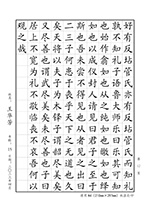 好有反坫管氏亦有反坫管氏而知礼
孰不知礼子语鲁大师乐曰乐其可知
也始作翕如也从之纯如也皦如也绎如
也以成仪封人请见曰君子之至于
斯也吾未尝不得见也从者见之出曰
二三子何患于丧乎天下之无道也久
矣天将以夫子为木铎子谓韶尽美
矣又尽善也谓武尽美矣未尽善也子曰
居上不宽为礼不敬临丧不哀吾何以
观之哉